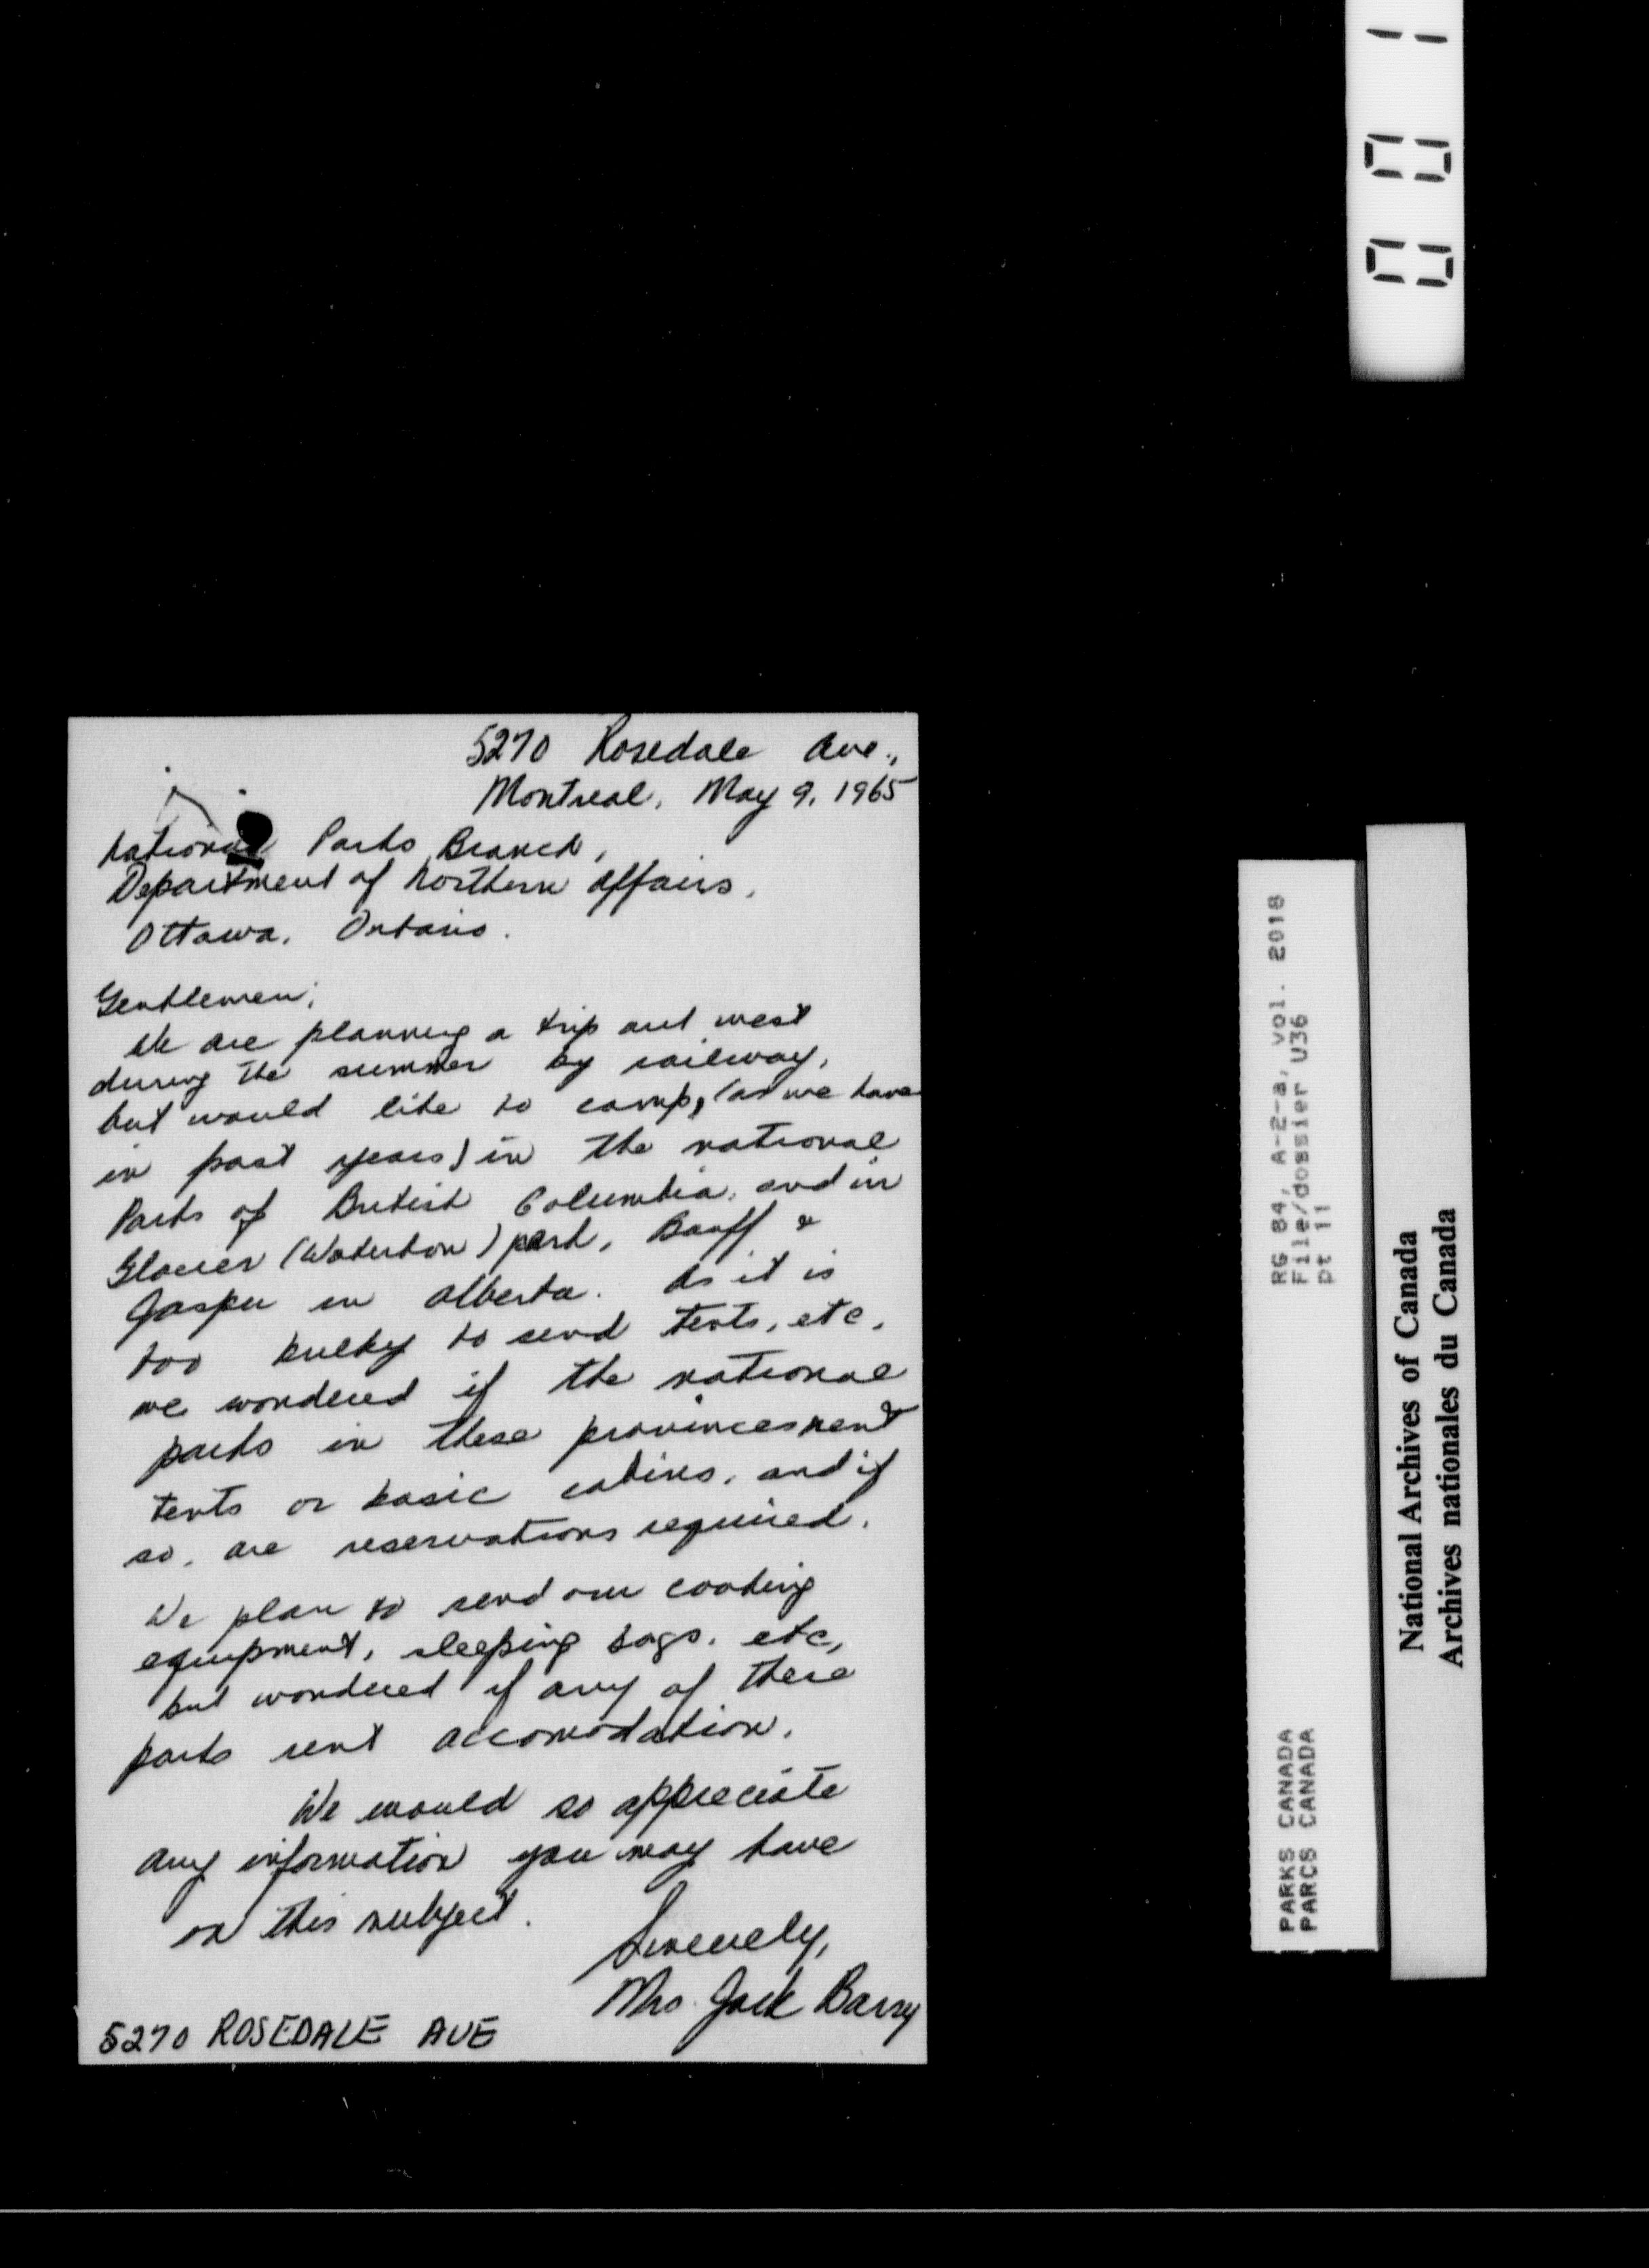 5270 Rosedale Ave.,
Montreal, May 9, 1965
National Parks Branch,
Department of Northern Affairs,
Ottawa, Ontario.
Gentlemen;
We are planning a trip out west
during the summer by railway,
but would like to camp, (as we have
in past years) in the national
Parks of British Columbia, and in
Glacier (Waterton) park, Banff &
Jasper in Alberta. As it is
too bulky to send tents, etc,
we wondered if the national
parks in these provinces rent
tents or basic cabins, and if
so, are reservations required.
We plan to send our cooking
equipment, sleeping bags, etc,
but wondered if any of these
parks rent accomodation.
We would so appreciate
any information you may have
on this subject.
Sincerely,
Mrs. Jack Barry
5270 ROSEDALE AVE
001
RG 84, A-2-a, vol. 2018
File/dossier U36
pt 11
PARKS CANADA
PARCS CANADA
National Archives of Canada
Archives nationales du Canada